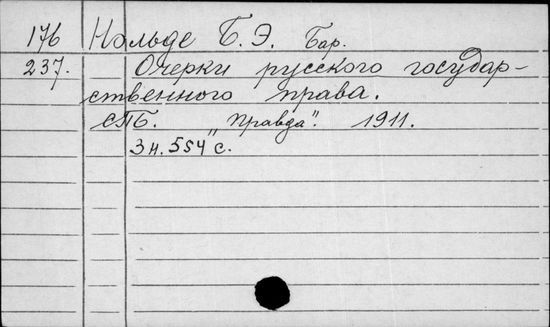 176 Нольде Б. Э. Бар.
237. Очерки русского государ-
ственного права.
СПБ. "Правда". 1911.
3 н. 554 с.